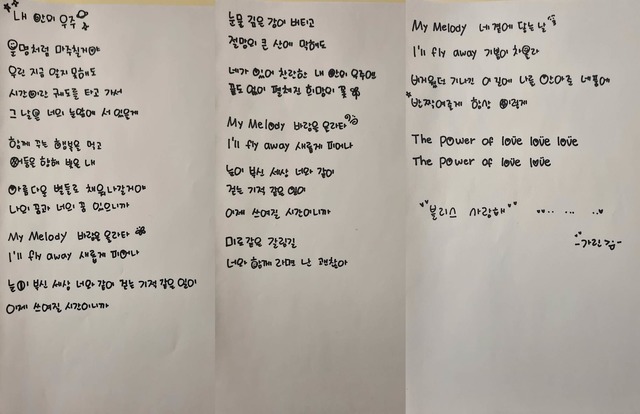 내 안의 우주
운명처럼 마주칠거야
우린 지금 알지 못해도
시간이란 궤도를 타고 가서
그날은 너의 눈앞에 서 있을게
함께 꾸는 행복을 먹고
어둠을 향해 빛을 내
아름다운 별들로 채워나갈거야
나의 꿈과 너의 꿈 있으니까
My Melody 바람을 올라타
I'll fly away 새롭게 피어나
눈이 부신 세상 너와 같이 걷는 기적 같은 일이
이제 쓰여질 시간이니까
눈물 길은 같이 버티고
절망의 큰 산에 막혀도
네가 있어 찬란한 내 안의 우주엔
끝도 없이 펼쳐진 희망의 꽃
My Melody 바람을 올라타
I'll fly away 새롭게 피어나
눈이 부신 세상 너와 같이
걷는 기적 같은 일이
이제 쓰여질 시간이니까
미로같은 갈림길
너와 함께 라면 난 괜찮아
My Melody 네 곁에 닿는 날
I'll fly away 기쁨이 차올라
비바람도 지나간 이 길에 나를 안아줘 네 품에
반짝이르게 항상 이렇게
The power of love love love
The power of love love
"블리스 사랑해"
-가린 김-